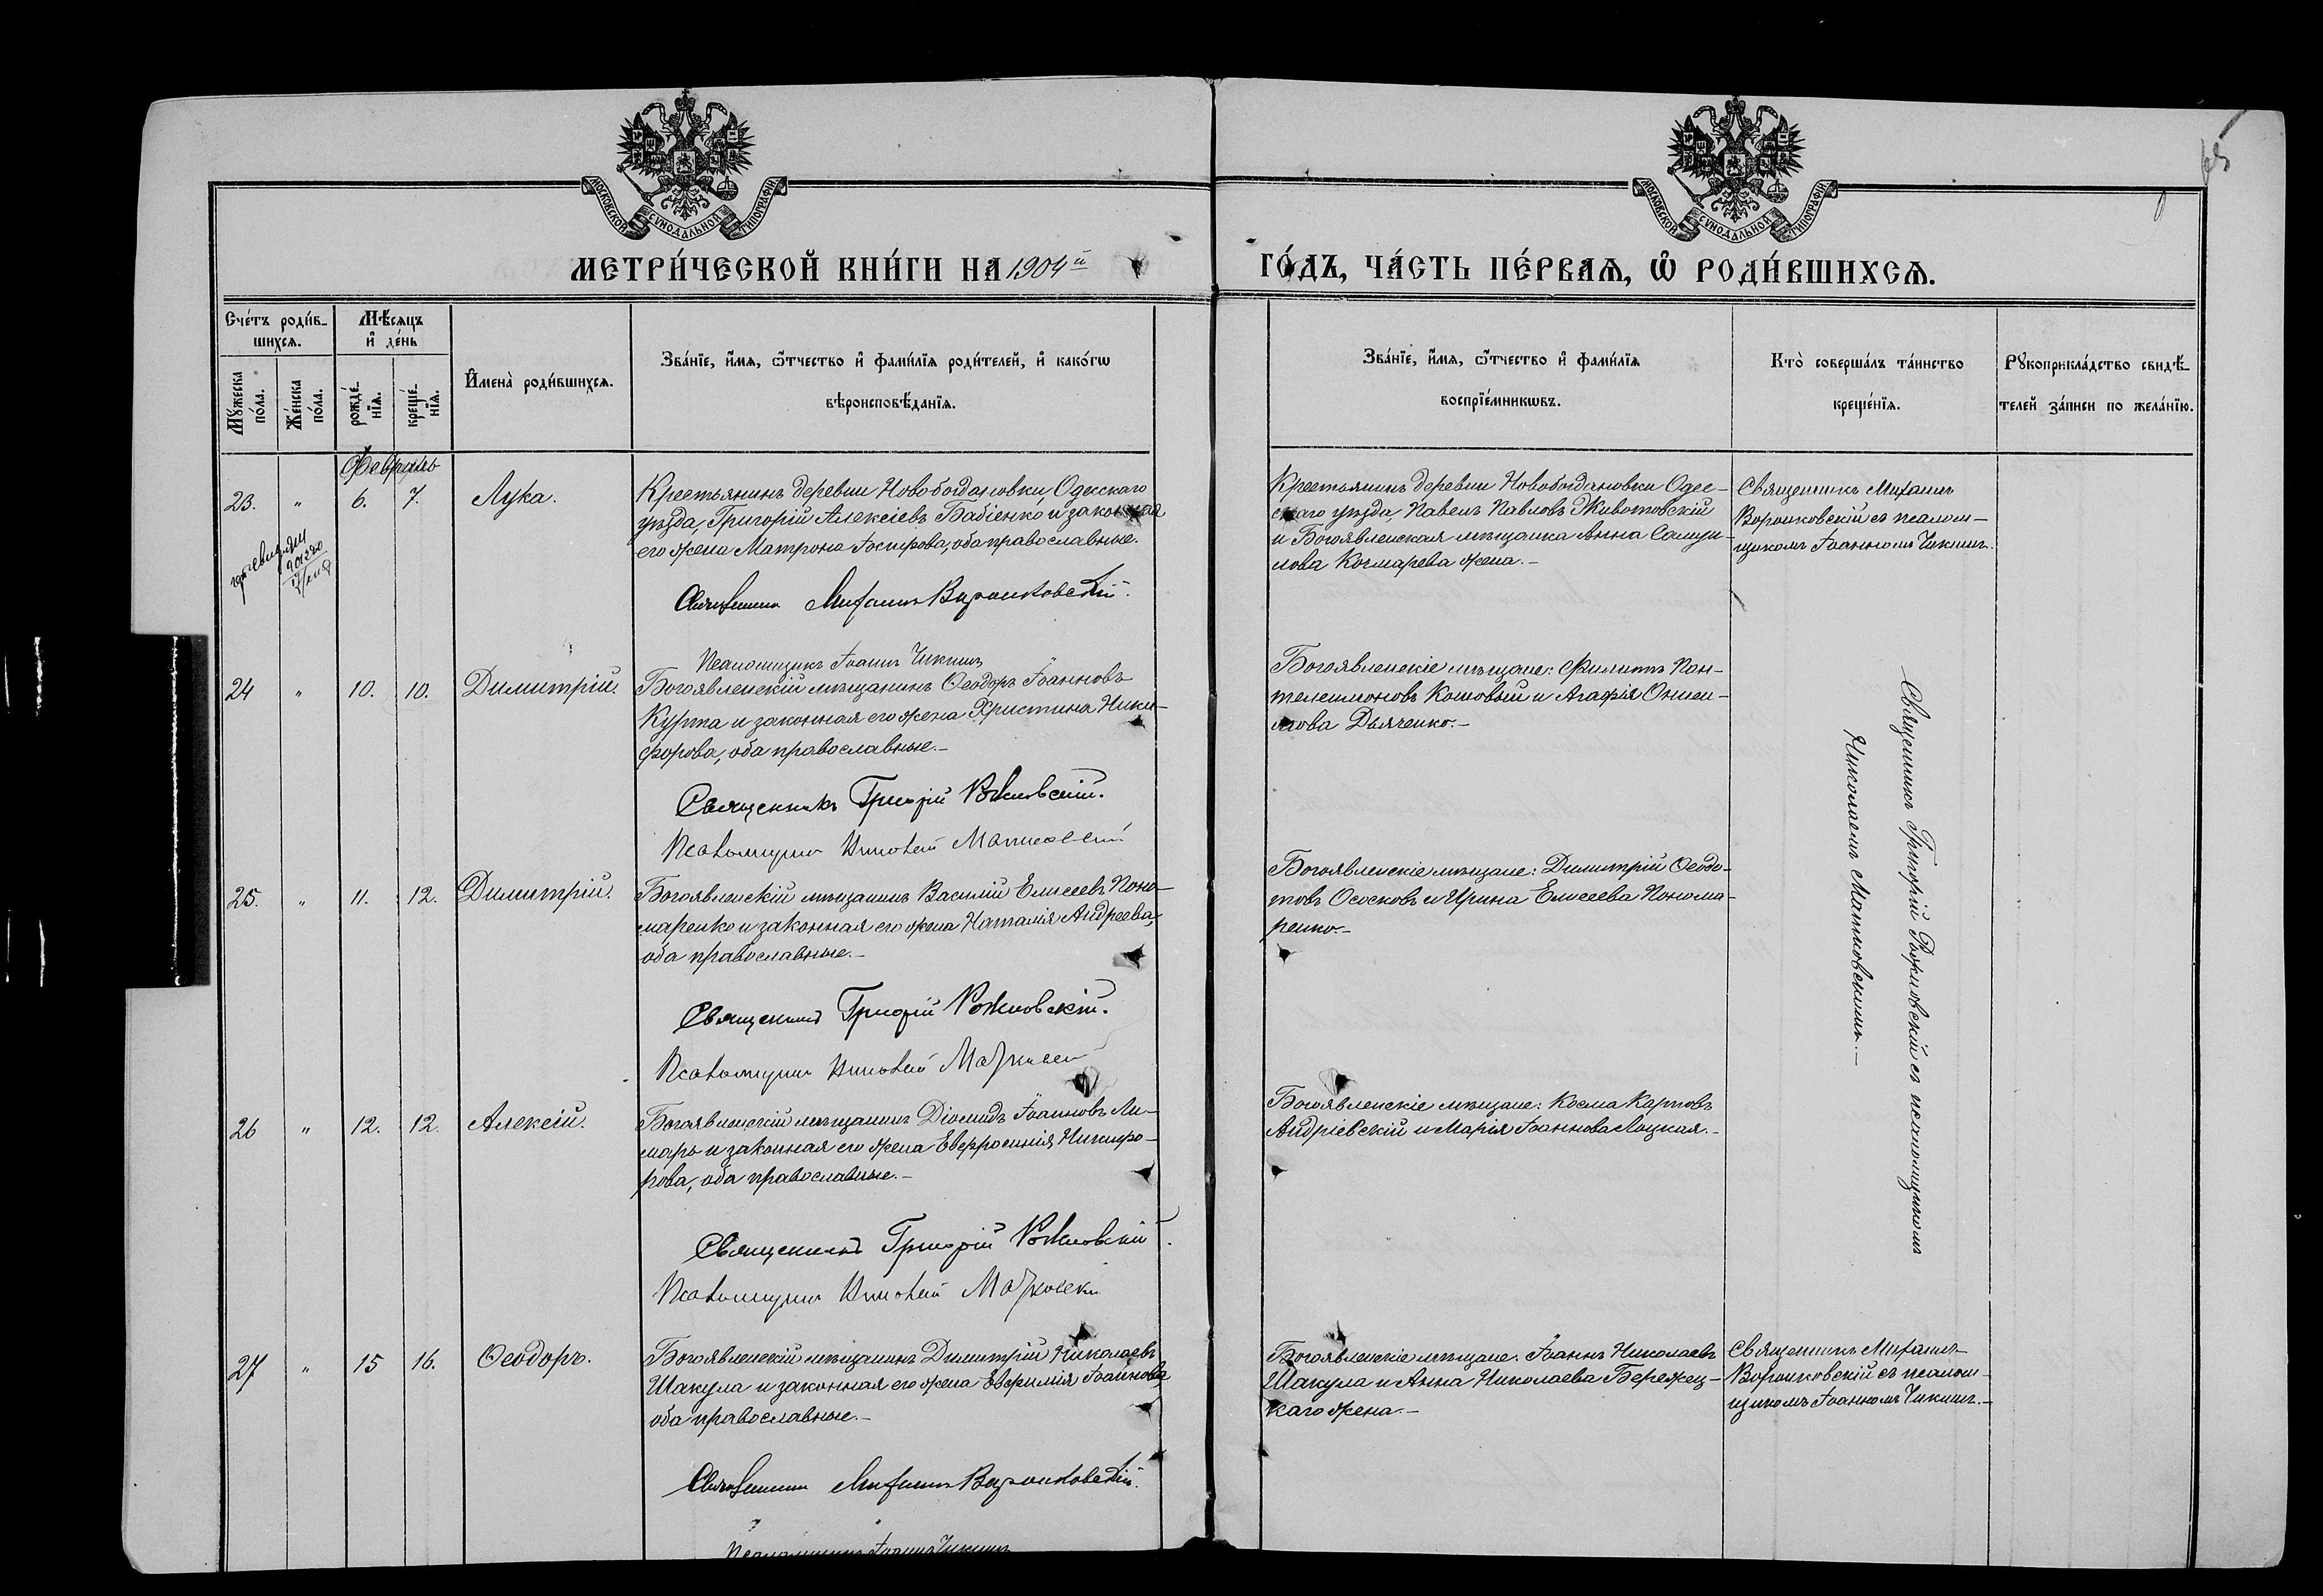 65
МОСКОВСКОЙ СУНОДАЛЬНОЙ ТИПОГРАФІИ
МОСКОВСКОЙ СУНОДАЛЬНОЙ ТИПОГРАФІИ
МЕТРИ́ЧЕСКОЙ КНИ́ГИ НА 1904й
ГО́ДЪ, ЧА́СТЬ ПЕ́РВАѦ, Ѡ҆ РОДИ́ВШИХСѦ.
Сче́тъ роди́в-
шихсѧ.
Мꙋ́жеска по́ла.
Же́нска по́ла.
Мѣ́сѧцъ
и҆ де́нь
рожде́-нїѧ.
креще́-нїѧ.
И҆мена̀ роди́вшихсѧ.
Зва́нїе, и҆́мѧ, ѻ҆́тчество и҆ фами́лїѧ роди́телей, и҆ како́гѡ
вѣроисповѣ́данїѧ.
Зва́нїе, и҆́мѧ, ѻ҆́тчество и҆ фами́лїѧ
воспрїе́мникѡвъ.
Кто̀ соверша́лъ та́инство
креще́нїѧ.
Рꙋкоприкла́дство свидѣ́-
телей за́писи по жела́нїю.
Февраль
23. " 6. 7. Лука.
Крестьянинъ деревни Новобогдановки, Одесскаго
уѣзда, Григорій Алексіевъ Бабіенко и законная
его жена Матрона Іосифова, оба православные.
Священникъ Михаилъ Воронковскій.
Псаломщикъ Іоаннъ Чикинъ
Крестьянинъ деревни Новобогдановки Одес-
скаго уѣзда, Павелъ Павловъ Животовскій
и Богоявленская мѣщанка Анна Самуи-
лова Косиарева жена.-
Священникъ Михаилъ
Воронковскій съ псалом-
щикомъ Іоанномъ Чикинъ.
24 " 10. 10. Димитрій.
Богоявленскій мѣщанинъ Ѳеодоръ Іоанновъ
Курта и законная его жена Христина Ники-
форова, оба православные.-
Священникъ Григорій Рожновскій.
Псаломщикъ Николай
Богоявленскіе мѣщане: Филиппъ Пан-
телеимоновъ Кошовый и Агафія Ониси-
мова Дьяченко.-
Священникъ Григорій Рожновскій съ псаломщикомъ
Николаемъ Матковскимъ.-
25. " 11. 12. Димитрій.
Богоявленскій мѣщанинъ Василій Елисеевъ Поно-
маренко и законная его жена Наталія Андреева,
оба православные.-
Священникъ Григорій Рожновскій.
Псаломщикъ Николай
Богоявленскіе мѣщане: Димитрій Ѳеодо-
товъ Ососковъ и Ирина Елисеева Понома-
ренко.-
26 " 12. 12. Алексій.
Богоявленскій мѣщанинъ Діомидъ Іоанновъ Ли-
марь и законная его жена Евфросинія Никифо-
рова, оба православные.-
Священникъ Григорій Рожновскій.
Псаломщикъ Николай
Богоявленскіе мѣщане: Косма Карповъ
Андріевскій и Марія Іоаннова Лоцкая.-
27 " 15 16. Ѳеодоръ.
Богоявленскій мѣщанинъ Димитрій Николаевъ
Шакула и законная его жена Евфимія Іоаннова,
оба православные.-
Священникъ Михаилъ Воронковскій.
Псаломщикъ Іоаннъ Чикинъ
Богоявленскіе мѣщане: Іоаннъ Николаевъ
Шакула и Анна Николаева Бережец-
каго жена.-
Священникъ Михаилъ
Воронковскій съ псалом-
щикомъ Іоанномъ Чикинъ.-